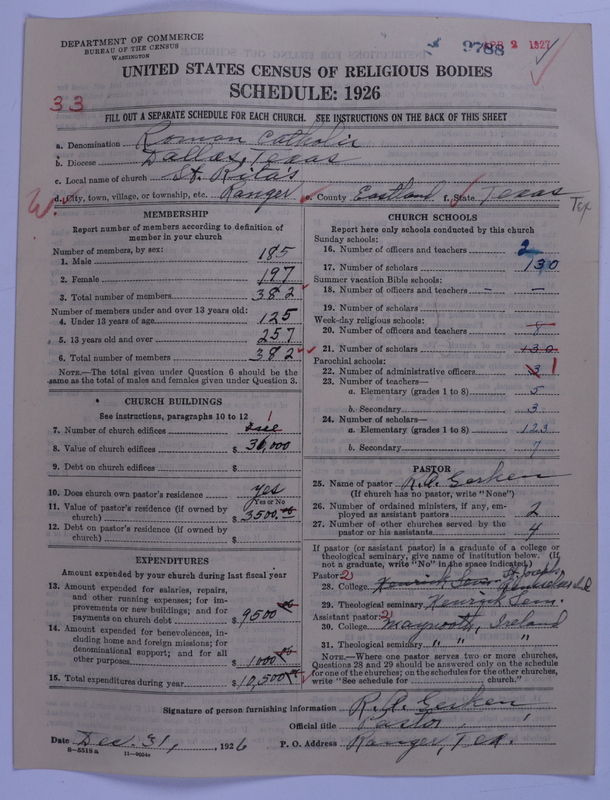 DEPARTMENT OF COMMERCE
BUREAU OF THE CENSUS
WASHINGTON
9788 APR 2 1927
UNITED STATES CENSUS OF RELIGIOUS BODIES
SCHEDULE: 1926
33
FILL OUT A SEPARATE SCHEDULE FOR EACH CHURCH. SEE INSTRUCTIONS ON THE BACK OF THIS SHEET
a. Denomination Roman Catholic
b. Diocese Dallas, Texas
c. Local name of church St. Rita's
d. City, town, village, or township, etc. Ranger e. County Eastland f. State Texas
Tex
MEMBERSHIP
Report number of members according to definition of
member in your church
Number of members, by sex:
1. Male 185
2. Female 197
3. Total number of members 382
Number of members under and over 13 years old:
4. Under 13 years of age 125
5. 13 years old and over 257
6. Total number of members 382
NOTE.—The total given under Question 6 should be the
same as the total of males and females given under Question 3.
CHURCH BUILDINGS
See instructions, paragraphs 10 to 12
7. Number of church edifices 1
8. Value of church edifices $
9. Debt on church edifices $
10. Does church own pastor's residence yes
Yes or No
11. Value of pastor's residence (if owned by
church) $ 3500.00
12. Debt on pastor's residence (if owned by
church) $
EXPENDITURES
Amount expended by your church during last fiscal year
13. Amount expended for salaries, repairs,
and other running expenses; for im-
provements or new buildings; and for
payments on church debt $ 9500 00
14. Amount expended for benevolences, in-
cluding home and foreign missions; for
denominational support; and for all
other purposes $ 1000 00
15. Total expenditures during year $ 10,500 00
CHURCH SCHOOLS
Report here only schools conducted by this church
Sunday schools:
16. Number of officers and teachers 2
17. Number of scholars 130
Summer vacation Bible schools:
18. Number of officers and teachers – –
19. Number of scholars
Week-day religious schools:
20. Number of officers and teachers 8
21. Number of scholars 130
Parochial schools:
22. Number of administrative officers 3 1
23. Number of teachers—
a. Elementary (grades 1 to 8) 5
b. Secondary 3
24. Number of scholars—
a. Elementary (grades 1 to 8) 123
b. Secondary 7
PASTOR
25. Name of pastor R. A. Gerken
(If church has no pastor, write "None")
26. Number of ordained ministers, if any, em-
ployed as assistant pastors 2
27. Number of other churches served by the
pastor or his assistants 4
If pastor (or assistant pastor) is a graduate of a college or
theological seminary, give name of institution below. (If
not a graduate, write "No" in the space indicated.)
Pastor: 2
28. College St. Joseph,
29. Theological seminary Kenrick Sem.
Assistant pastor: 21
30. College Maynooth, Ireland
31. Theological seminary " " "
NOTE.—Where one pastor serves two or more churches,
Questions 28 and 29 should be answered only on the schedule
for one of the churches; on the schedules for the other churches,
write "See schedule for church."
Signature of person furnishing information R. A. Gerken
Official title Pastor
Date Dec. 31, 1926 P. O. Address Ranger, Tex.
8-5518 a 11-9004